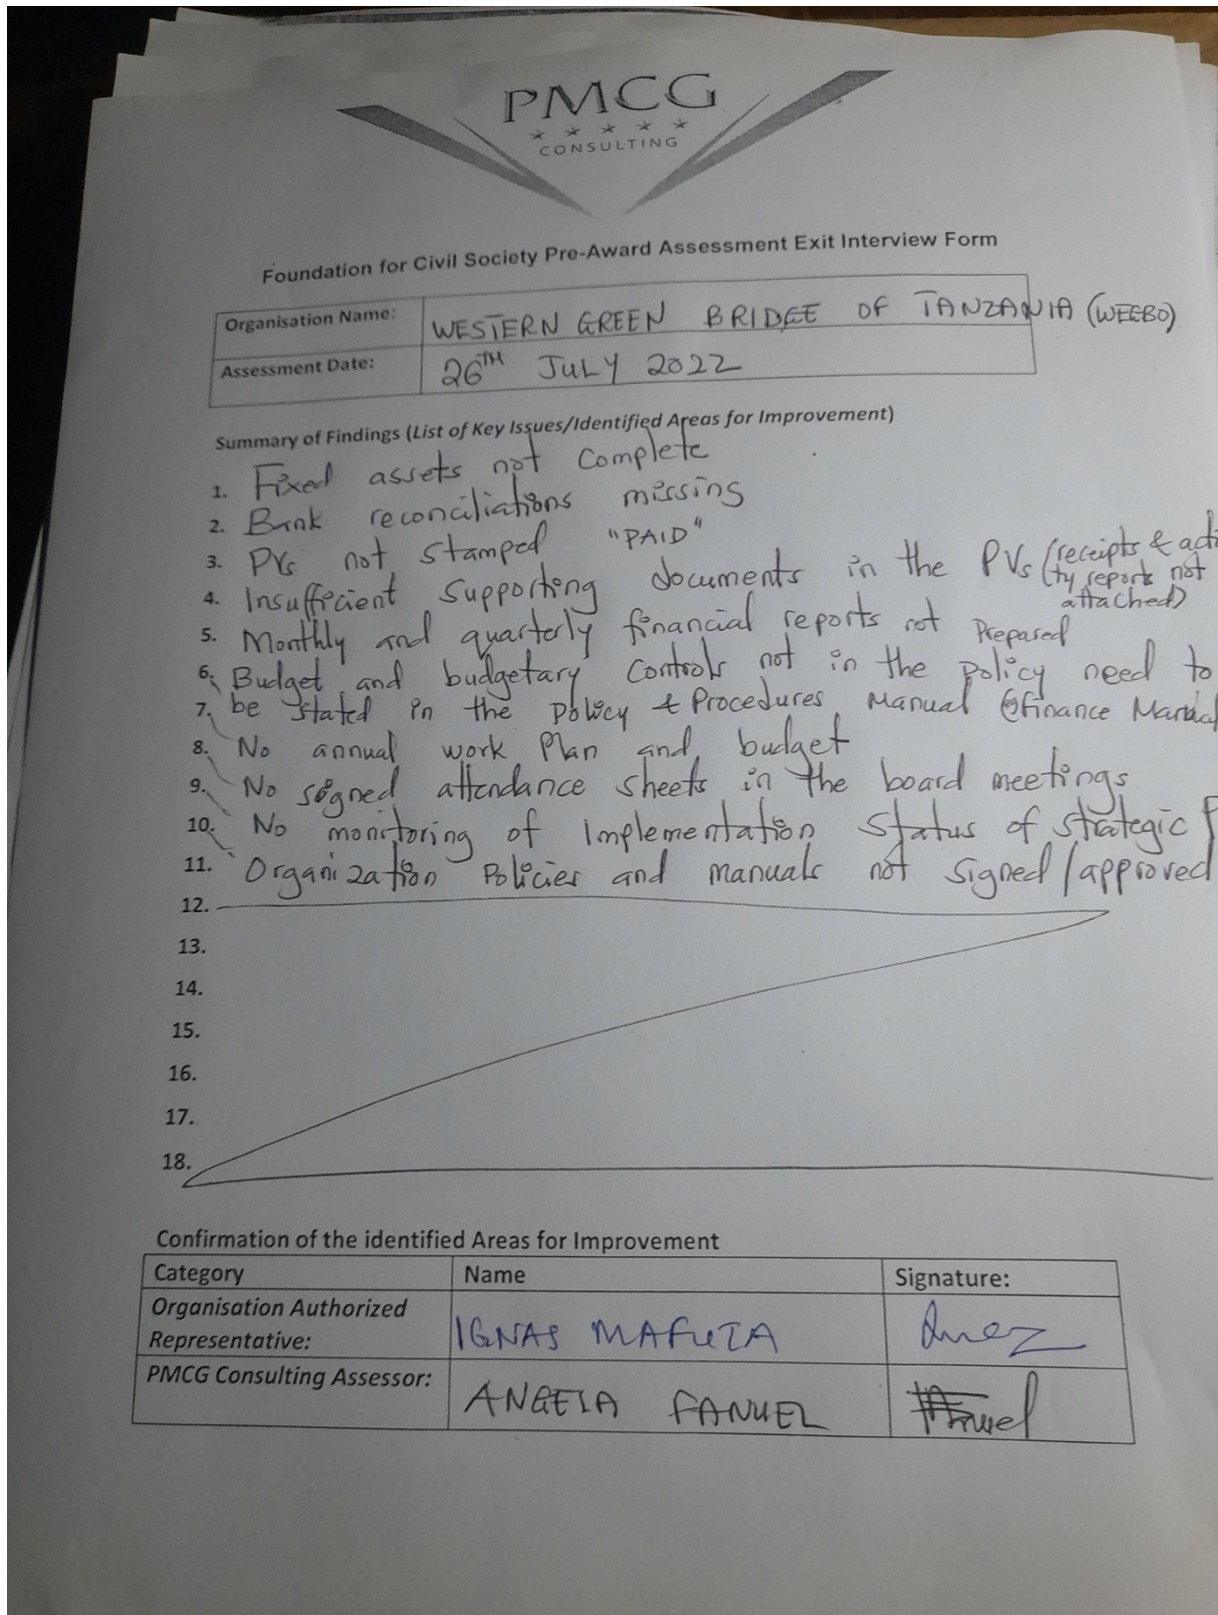 PMCG
CONSULTING
Foundation for Civil Society Pre-Award Assessment Exit Interview Form
Organisation Name: WESTERN GREEN BRIDGE OF TANZANIA (WEGBO)
Assessment Date: 26TH JULY 2022
Summary of Findings (List of Key Issues/Identified Areas for Improvement)
1. Fixed assets not complete
2. Bank reconciliations missing
3. PVs not stamped "PAID"
4. Insufficient supporting documents in the PVs (receipts & acti
ty reports not
attached)
5. Monthly and quarterly financial reports not prepared
6. Budget and budgetary controls not in the policy need to
7. be stated in the policy & Procedures Manual @finance Manual
8. No annual work Plan and budget
9. No signed attendance sheets in the board meetings
10. No monitoring of implementation status of strategic P
11. Organization Policies and manuals not signed/approved
12.
13.
14.
15.
16.
17.
18.
Confirmation of the identified Areas for Improvement
Category Name Signature:
Organisation Authorized
Representative: IGNAS MAFUTA
PMCG Consulting Assessor: ANGELA FANUEL